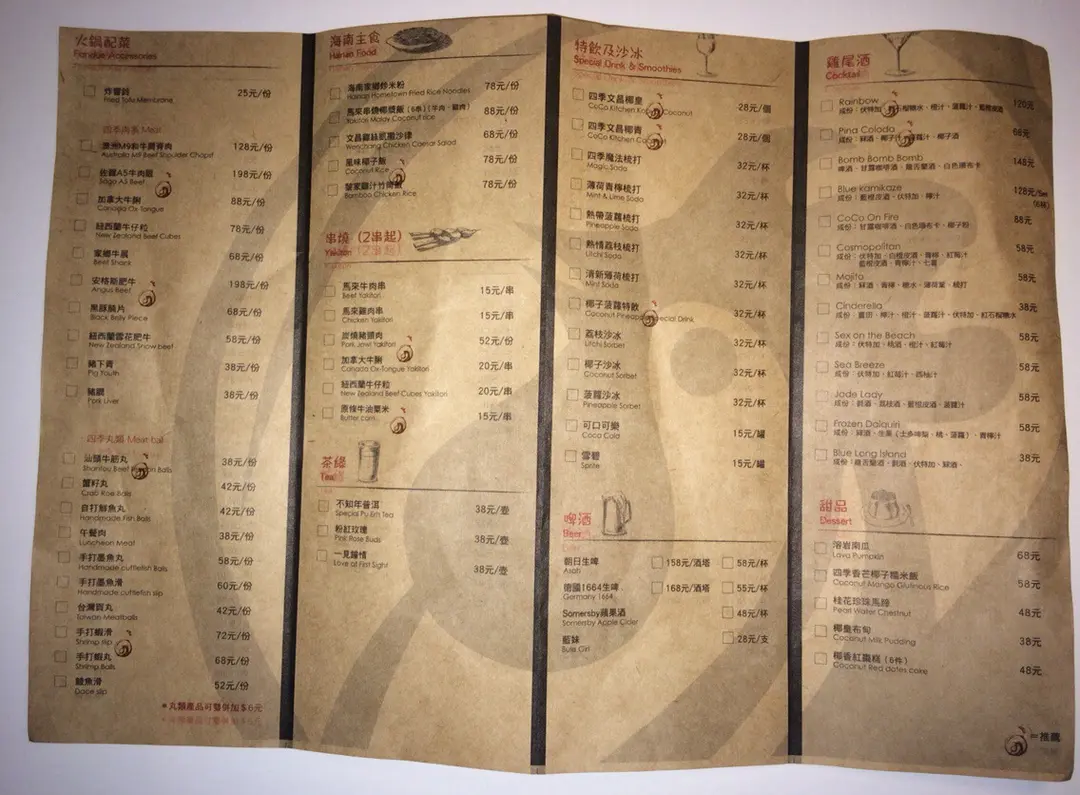 火鍋配菜
Fondue Accessories
炸響鈴
Fried Tofu Membrane
25元/份
四季肉集 Meat
澳洲M9和牛肩脊肉
128元/份
佐賀A5牛肉眼
Saga A5 Beef
198元/份
加拿大牛脷
Canada Ox Tongue
88元/份
紐西蘭牛仔粒
New Zealand Beef Cubes
78元/份
家鄉牛展
Beef Shank
68元/份
安格斯肥牛
Angus Beef
198元/份
黑豚腩片
Black Belly Piece
68元/份
紐西蘭雪花肥牛
New Zealand Snow beef
58元/份
豬下青
Pig Youth
38元/份
豬膶
Pork Liver
38元/份
四季丸類 Meat ball
汕頭牛筋丸
Shantou Beef Balls
38元/份
蟹籽丸
Crab Roe Balls
42元/份
自打鮮魚丸
Handmade Fish Balls
42元/份
午餐肉
Luncheon Meat
38元/份
手打墨魚丸
Handmade cuttlefish Balls
58元/份
手打墨魚滑
Handmade cuttlefish slip
60元/份
台灣貢丸
Taiwan Meatballs
42元/份
手打蝦滑
Shrimp slip
72元/份
手打蝦丸
Shrimp Balls
68元/份
鯪魚滑
Dace slip
52元/份
*丸類產品可雙併加$6元
海南主食
Hainan Food
海南家鄉炒米粉
Hainan Hometown Fried Rice Noodles
78元/份
馬來串燒椰漿飯 (6串)(羊肉、雞肉)
Coconut rice
88元/份
文昌雞絲凱撒沙律
Wenchang Chicken Caesar Salad
68元/份
風味椰子飯
Coconut Rice
78元/份
Bamboo Chicken Rice
78元/份
串燒 (2串起)
Yakitori
馬來牛肉串
Beef Yakitori
15元/串
馬來雞肉串
Chicken Yakitori
15元/串
炭燒豬頸肉
Pork Jewl Yakitori
52元/份
加拿大牛脷
Canada Ox-Tongue Yakitori
20元/串
紐西蘭牛仔粒
New Zealand Beef Cubes Yakitori
20元/串
原條牛油粟米
Butter corn
15元/串
茶緣
Tea
不知年普洱
Special Pu Erh Tea
38元/壺
粉紅玫瑰
Pink Rose Buds
38元/壺
一見鍾情
Love at First Sight
38元/壺
特飲及沙冰
Special Drink & Smoothies
四季文昌椰皇
CoCo Kitchen Coconut
28元/個
四季文昌椰青
CoCo Kitchen
28元/個
四季魔法梳打
Magic Soda
32元/杯
薄荷青檸梳打
Mint & Lime Soda
32元/杯
熱帶菠蘿梳打
Pineapple Soda
32元/杯
熱情荔枝梳打
Litchi Soda
32元/杯
清新薄荷梳打
Mint Soda
32元/杯
椰子菠蘿特飲
Coconut Pineapple Special Drink
32元/杯
荔枝沙冰
Litchi Sorbet
32元/杯
椰子沙冰
Coconut Sorbet
32元/杯
菠蘿沙冰
Pineapple Sorbet
32元/杯
可口可樂
Coca Cola
15元/罐
雪碧
Sprite
15元/罐
啤酒
Beer
朝日生啤
Asahi
158元/酒塔
58元/杯
德國1664生啤
Germany 1664
168元/酒塔
55元/杯
Somersby蘋果酒
Somersby Apple Cider
48元/杯
藍妹
28元/支
雞尾酒
Cocktail
Rainbow
120元
Pina Colada
68元
Bomb Bomb Bomb
148元
Blue Kamikaze
成份：藍橙皮酒、伏特加、檸汁
128元/Set
(6杯)
CoCo On Fire
成份：甘露咖啡酒、白色瑪布卡、椰子粉
88元
Cosmopolitan
58元
Mojito
成份：冧酒、青檸、糖水、薄荷葉、梳打
58元
Cinderella
38元
Sex on the Beach
成份：伏特加、桃酒、橙汁、紅莓汁
58元
Sea Breeze
成份：伏特加、紅莓汁、西柚汁
58元
Jade Lady
58元
Frozen Daiquiri
58元
Blue Long Island
38元
甜品
Dessert
溶岩南瓜
Lava Pumpkin
68元
四季香芒椰子糯米飯
Coconut Mango Glutinous Rice
58元
桂花珍珠馬蹄
Pearl Water Chestnut
48元
椰皇布甸
Coconut Milk Pudding
38元
椰香紅棗糕 (6件)
Coconut Red dates cake
48元
=推薦